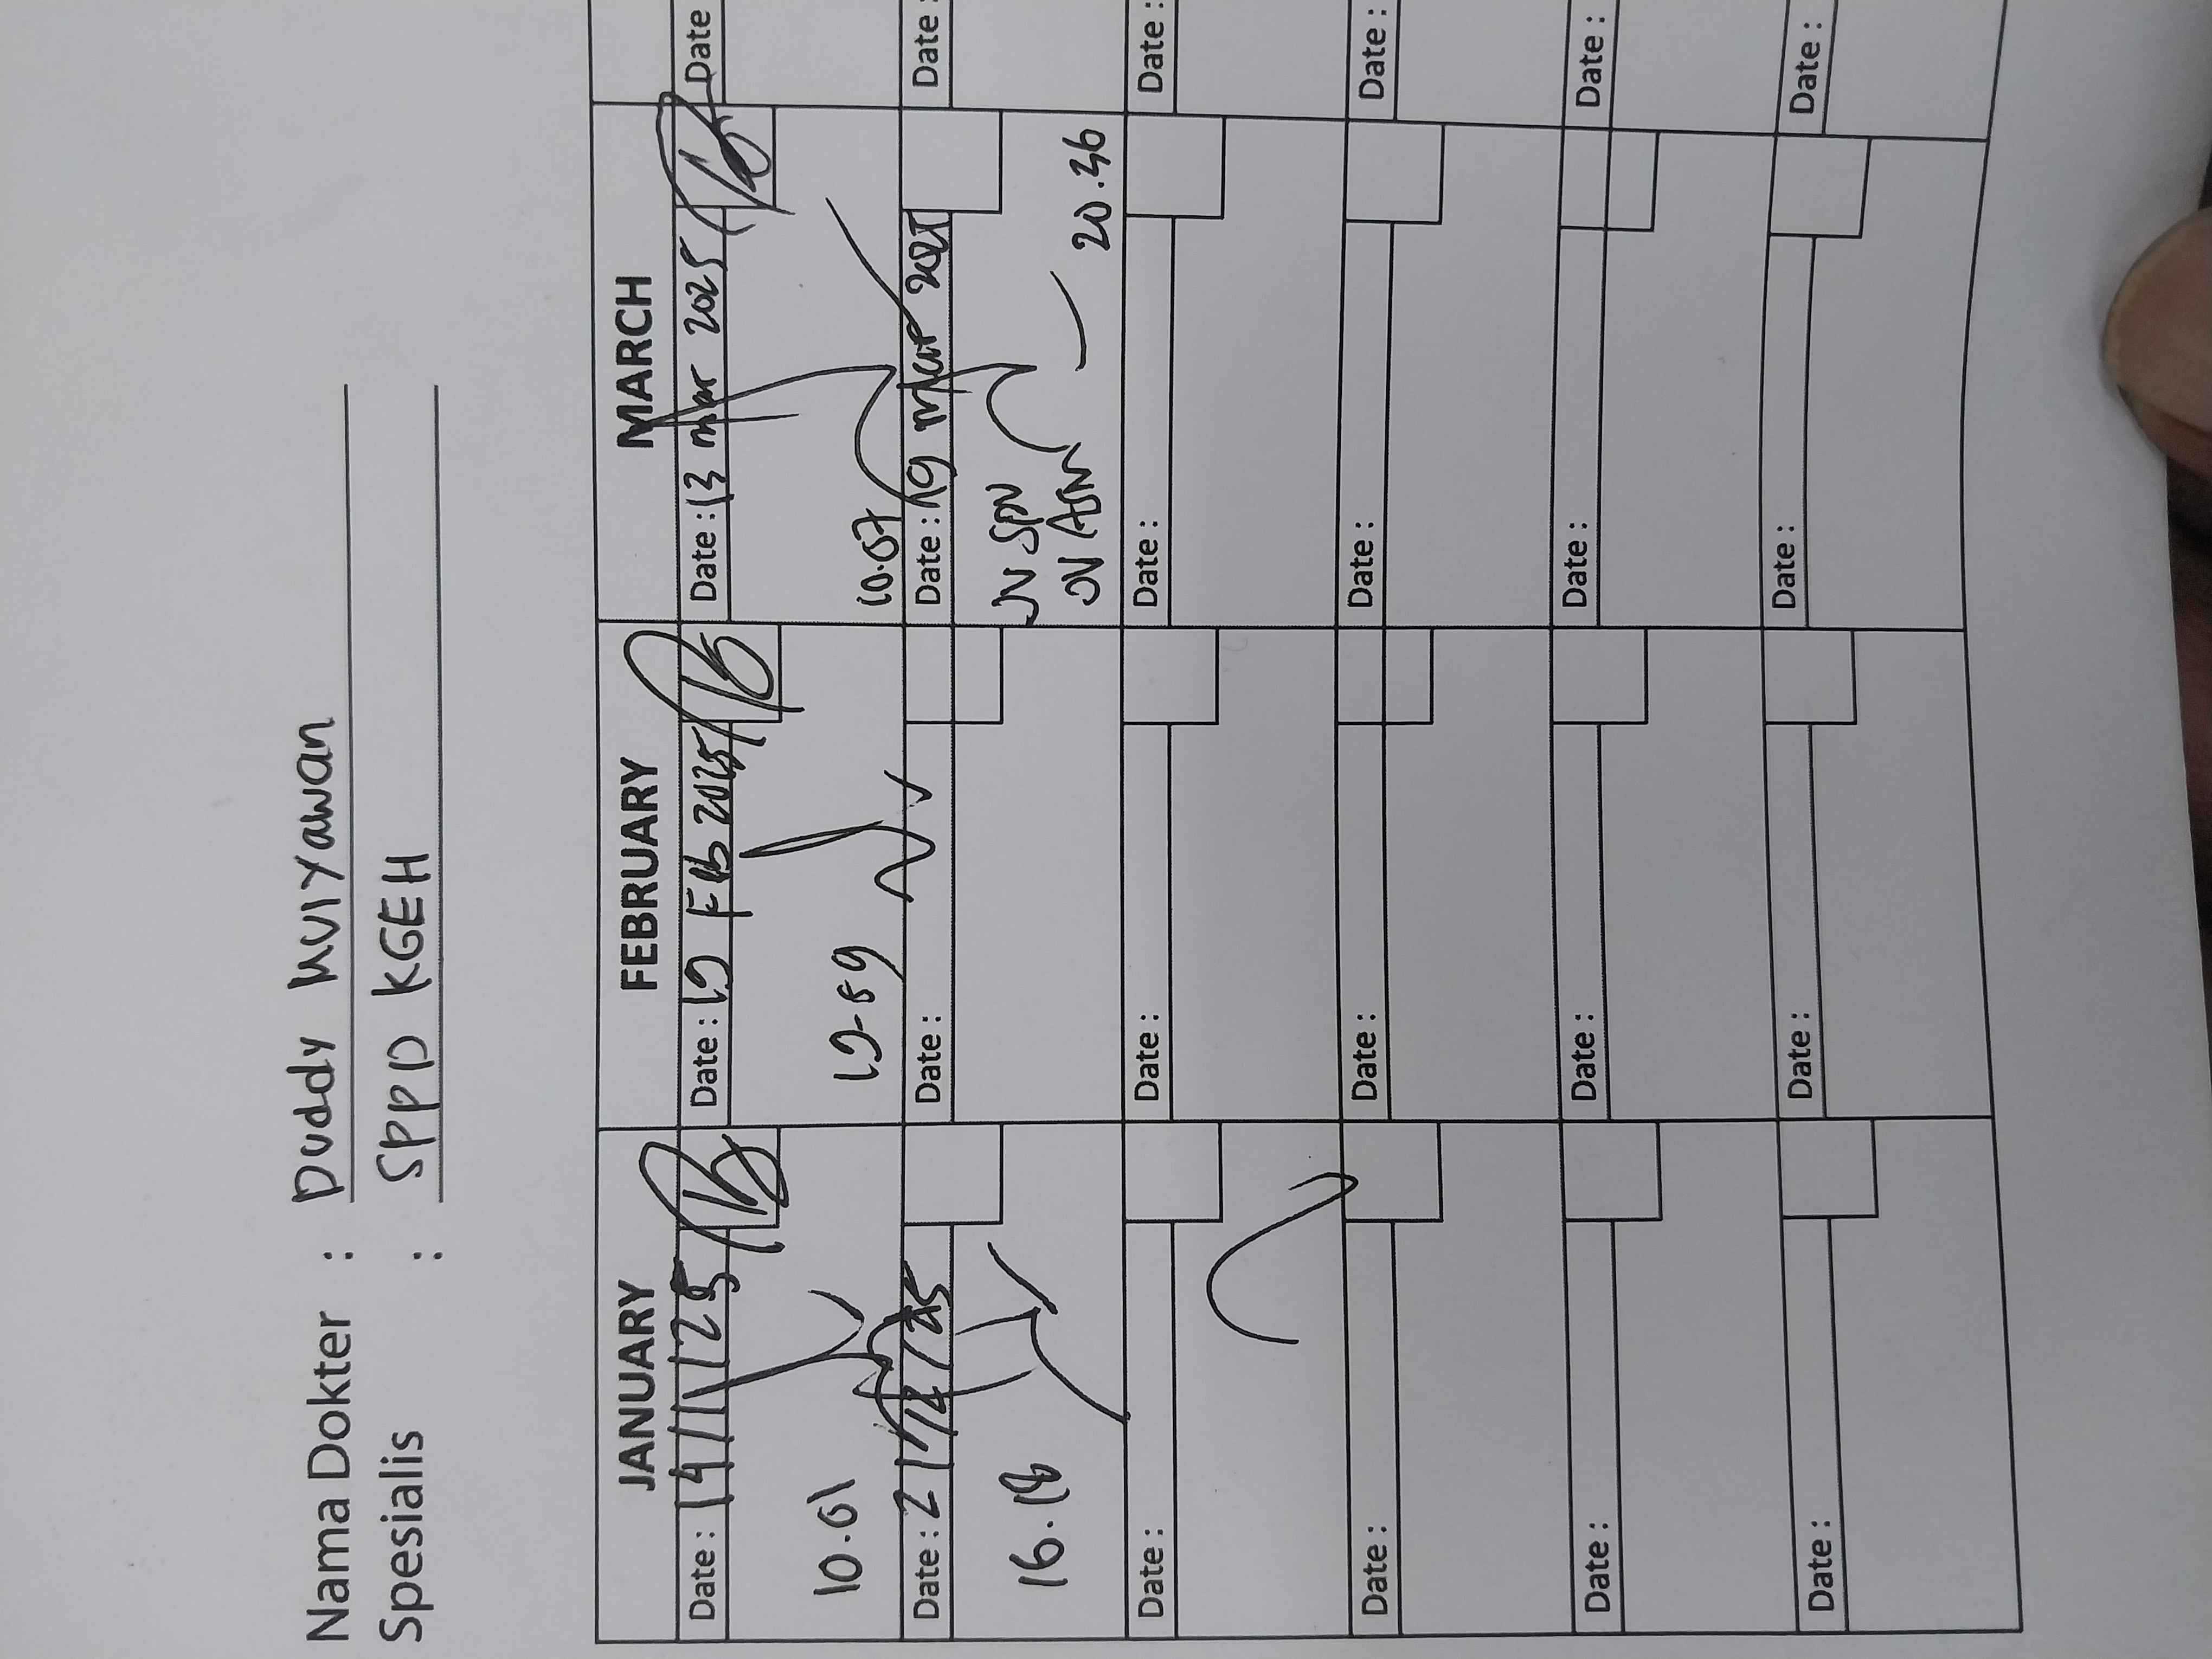 Nama Dokter : Duddy Mulyawan
Spesialis : SPPD KGEH
JANUARY FEBRUARY MARCH
Date : 14/1/25 Date : 19 Feb 2025 Date : 13 mar 2025 Date
10.01 19-59 10.57
Date : 21/1/25 Date : Date : 19 mar 2025 Date :
16.18 JV SPV
JV ASM 20.36
Date : Date : Date : Date :
Date : Date : Date : Date :
Date : Date : Date : Date :
Date : Date : Date : Date :